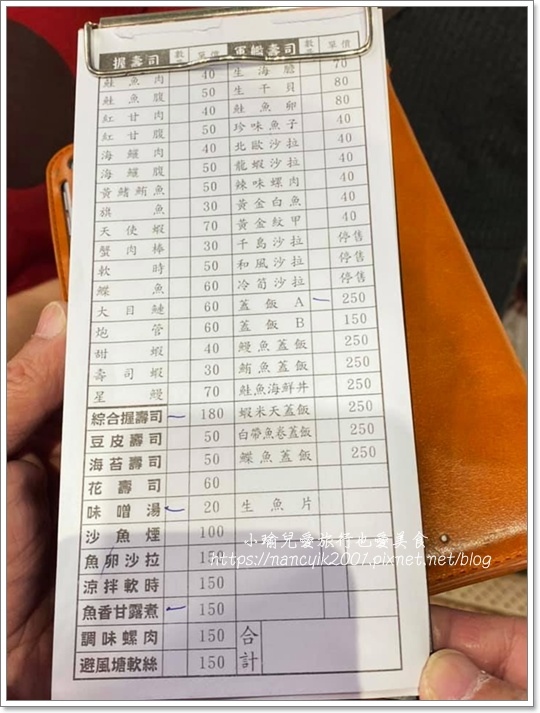 握壽司 數量 單價 軍艦壽司 數量 單價
鮭魚肉 40 生海膽 70
鮭魚腹 50 生干貝 80
紅甘肉 40 鮭魚卵 80
紅甘腹 50 珍味魚子 40
海鱺肉 40 北歐沙拉 40
海鱺腹 50 龍蝦沙拉 40
黃鰭鮪魚 50 辣味螺肉 40
旗魚 30 黃金白魚 40
天使蝦 70 黃金紋甲 40
蟹肉棒 30 千島沙拉 停售
軟時 50 和風沙拉 停售
鰈魚 60 冷筍沙拉 停售
大目鰱 60 蓋飯A 250
炮管 60 蓋飯B 150
甜蝦 40 鰻魚蓋飯 250
壽司蝦 30 鮪魚蓋飯 250
星鰻 70 鮭魚海鮮丼 250
綜合握壽司 180 蝦米天蓋飯 250
豆皮壽司 50 白帶魚卷蓋飯 250
海苔壽司 50 鰈魚蓋飯 250
花壽司 60
味噌湯 20 生魚片
沙魚煙 100
魚卵沙拉 150
涼拌軟時 150
魚香甘露煮 150
調味螺肉 150 合計
避風塘軟絲 150
小瑜兒愛旅行也愛美食
https://nancyjk2001.pixnet.net/blog